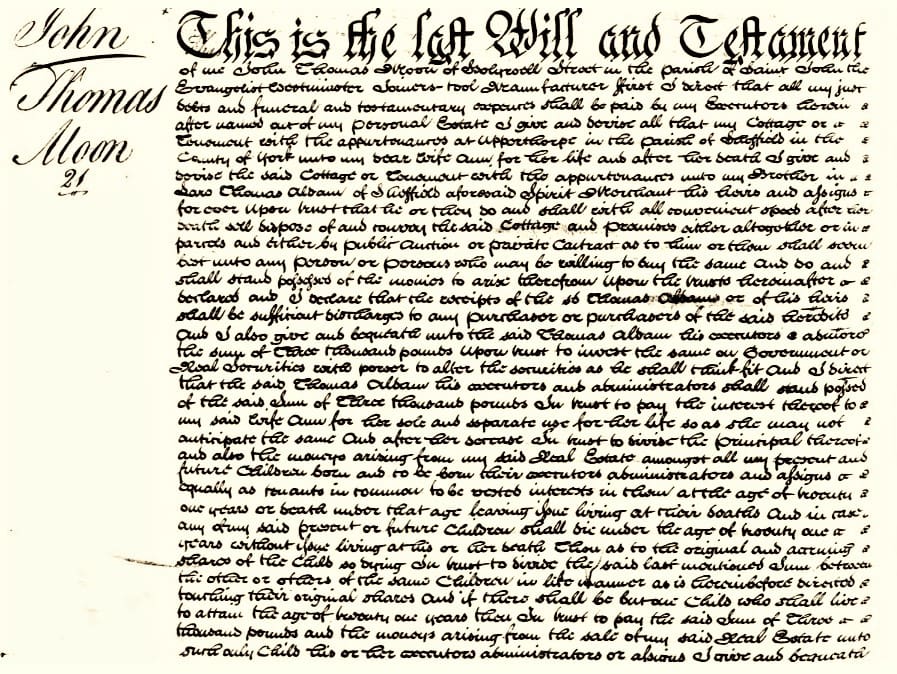 John
Thomas
Moon
21
This is the last Will and Testament
of me John Thomas Moon of Holywell Street in the Parish of Saint John the
Evangelist Westminster Joiners-tool Manufacturer First I direct that all my just
debts and funeral and testamentary expences shall be paid by my Executors herein
after named out of my Personal Estate I give and devise all that my Cottage or
Tenement with the appurtenances at Upperthorpe in the Parish of Sheffield in the
County of York unto my dear Wife Ann, for her life and after her death I give and
devise the said Cottage or Tenement with the appurtenances unto my Brother in
Law Thomas Aldam of Sheffield aforesaid Spirit Merchant his heirs and assigns
for ever Upon trust that he or they do and shall with all convenient speed after her
death sell dispose of and convey the said Cottage and Premises either altogether or in
parcels and either by Public Auction or private Contract as to him or them shall seem
unto any Person or Persons who may be willing to buy the same And do and
shall stand possessed of the monies to arise therefrom Upon the trusts hereinafter
declared and I declare that the receipts of the sd Thomas or of his heirs
shall be sufficient discharges to any Purchaser or purchasers of the said heredits
And I also give and bequeath unto the said Thomas Aldam his executors &
the sum of Three thousand pounds Upon trust to invest the same on Government or
Real Securities with power to alter the securities as he shall think fit And I direct
that the said Thomas Aldam his executors and administrators shall stand possed
of the said Sum of Three thousand pounds In trust to pay the interest thereof to
my said Wife Ann for her sole and separate use for her life so as she may not
anticipate the same And after her decease In trust to divide the Principal thereof
and also the moneys arising from my said Real Estate amongst all my present and
future Children born and to be born their executors administrators and assigns
equally as tenants in common to be vested interests in them at the age of twenty
one years or death under that age leaving issue living at their deaths And in case
any of my said present or future Children shall die under the age of twenty one
years without issue living at his or her death Then as to the original and accruing
shares of the Child so dying In trust to divide the said last mentioned Sum between
the other or others of the same Children in like manner as is hereinbefore directed
touching their original shares And if there shall be but one Child who shall live
to attain the age of twenty one years then In trust to pay the said Sum of Three
thousand pounds and the moneys arising from the sale of my said Real Estate unto
such only Child his or her executors administrators or assigns I give and bequeath